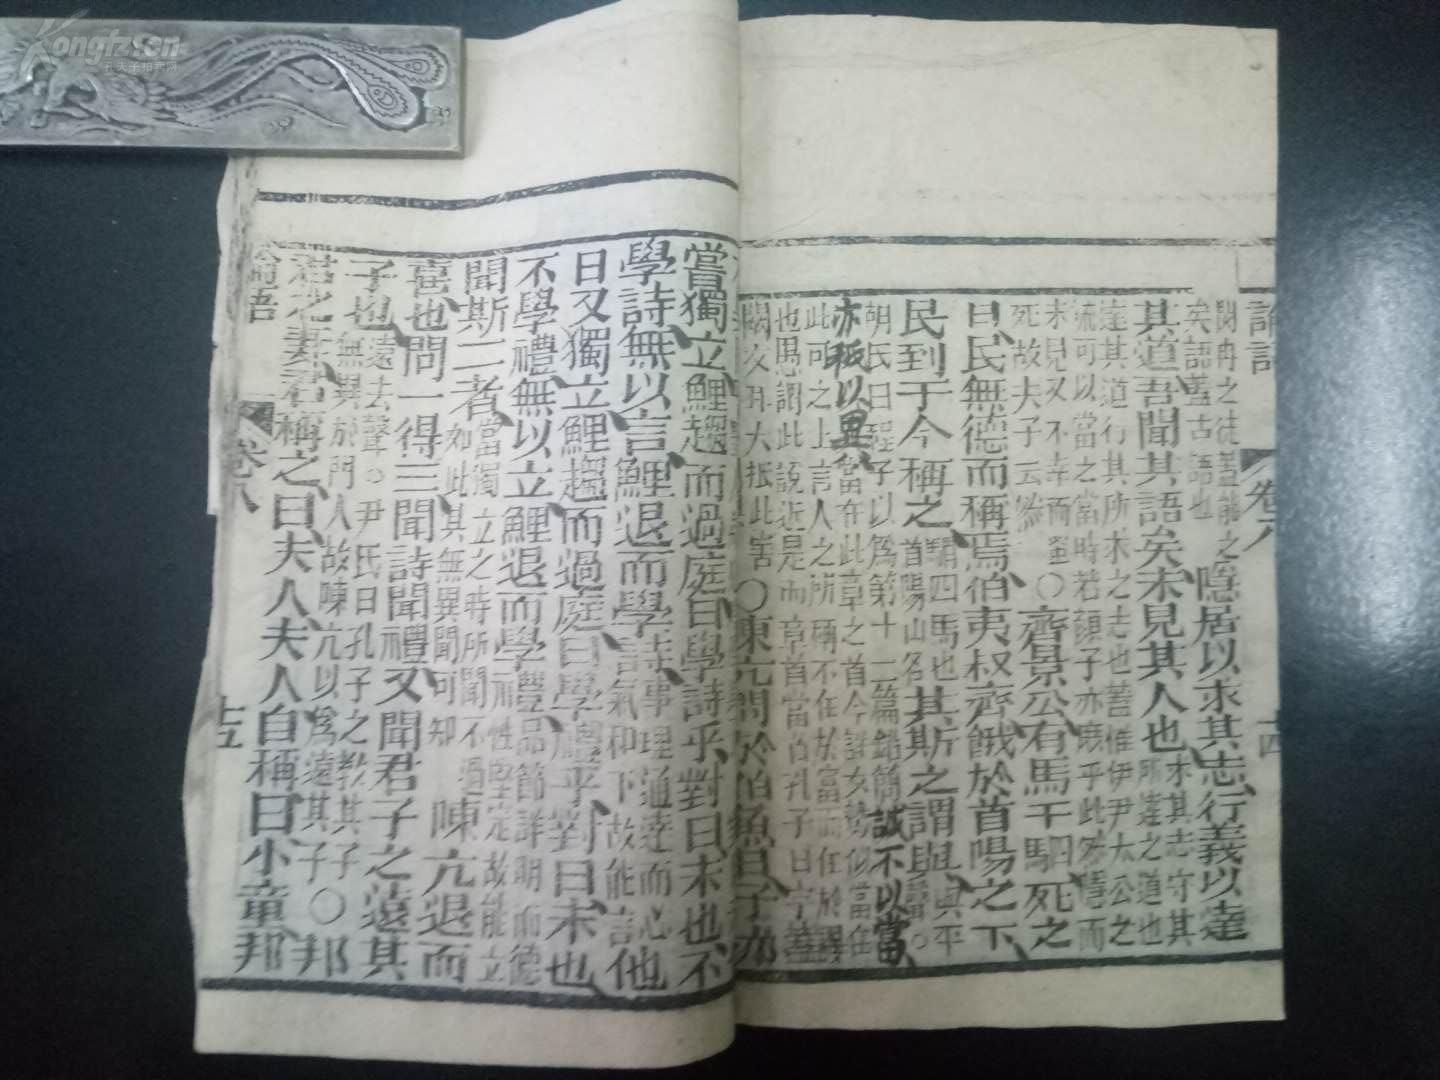 論語 卷八 十四
閔冉之徒蓋能之
矣語蓋古語也
隱居以求其志行義以達
其道吾聞其語矣未見其人也
求其志守其
所達之道也
達其道行其所求之志也蓋惟伊尹太公之
流可以當之當時若顏子亦庶乎此然隱而
未見又不幸而蚤
死故夫子云然
○齊景公有馬千駟死之
日民無德而稱焉伯夷叔齊餓於首陽之下
民到于今稱之
駟四馬也
首陽山名
其斯之謂與
與平
聲○
胡氏曰程子以爲第十二篇錯簡誠不以富
亦祗以異當在此章之首今詳文勢似當在
此句之上言人之所稱不在於富而在於異
也愚謂此說近是而章首當有孔子曰字蓋
闕文耳大抵此書
○陳亢問於伯魚曰子亦
嘗獨立鯉趨而過庭曰學詩乎對曰未也不
學詩無以言鯉退而學詩
事理通達而心
氣和平故能言
他
日又獨立鯉趨而過庭曰學禮乎對曰未也
不學禮無以立鯉退而學禮
品節詳明而德
性堅定故能立
聞斯二者
當獨立之時所聞不過
如此其無異聞可知
陳亢退而
喜也問一得三聞詩聞禮又聞君子之遠其
子也
遠去聲○尹氏曰孔子之教其子
無異於門人故陳亢以爲遠其子
○邦
君之妻君稱之曰夫人夫人自稱曰小童邦
論語 卷八 十五
Kongfz.com
孔夫子拍卖网